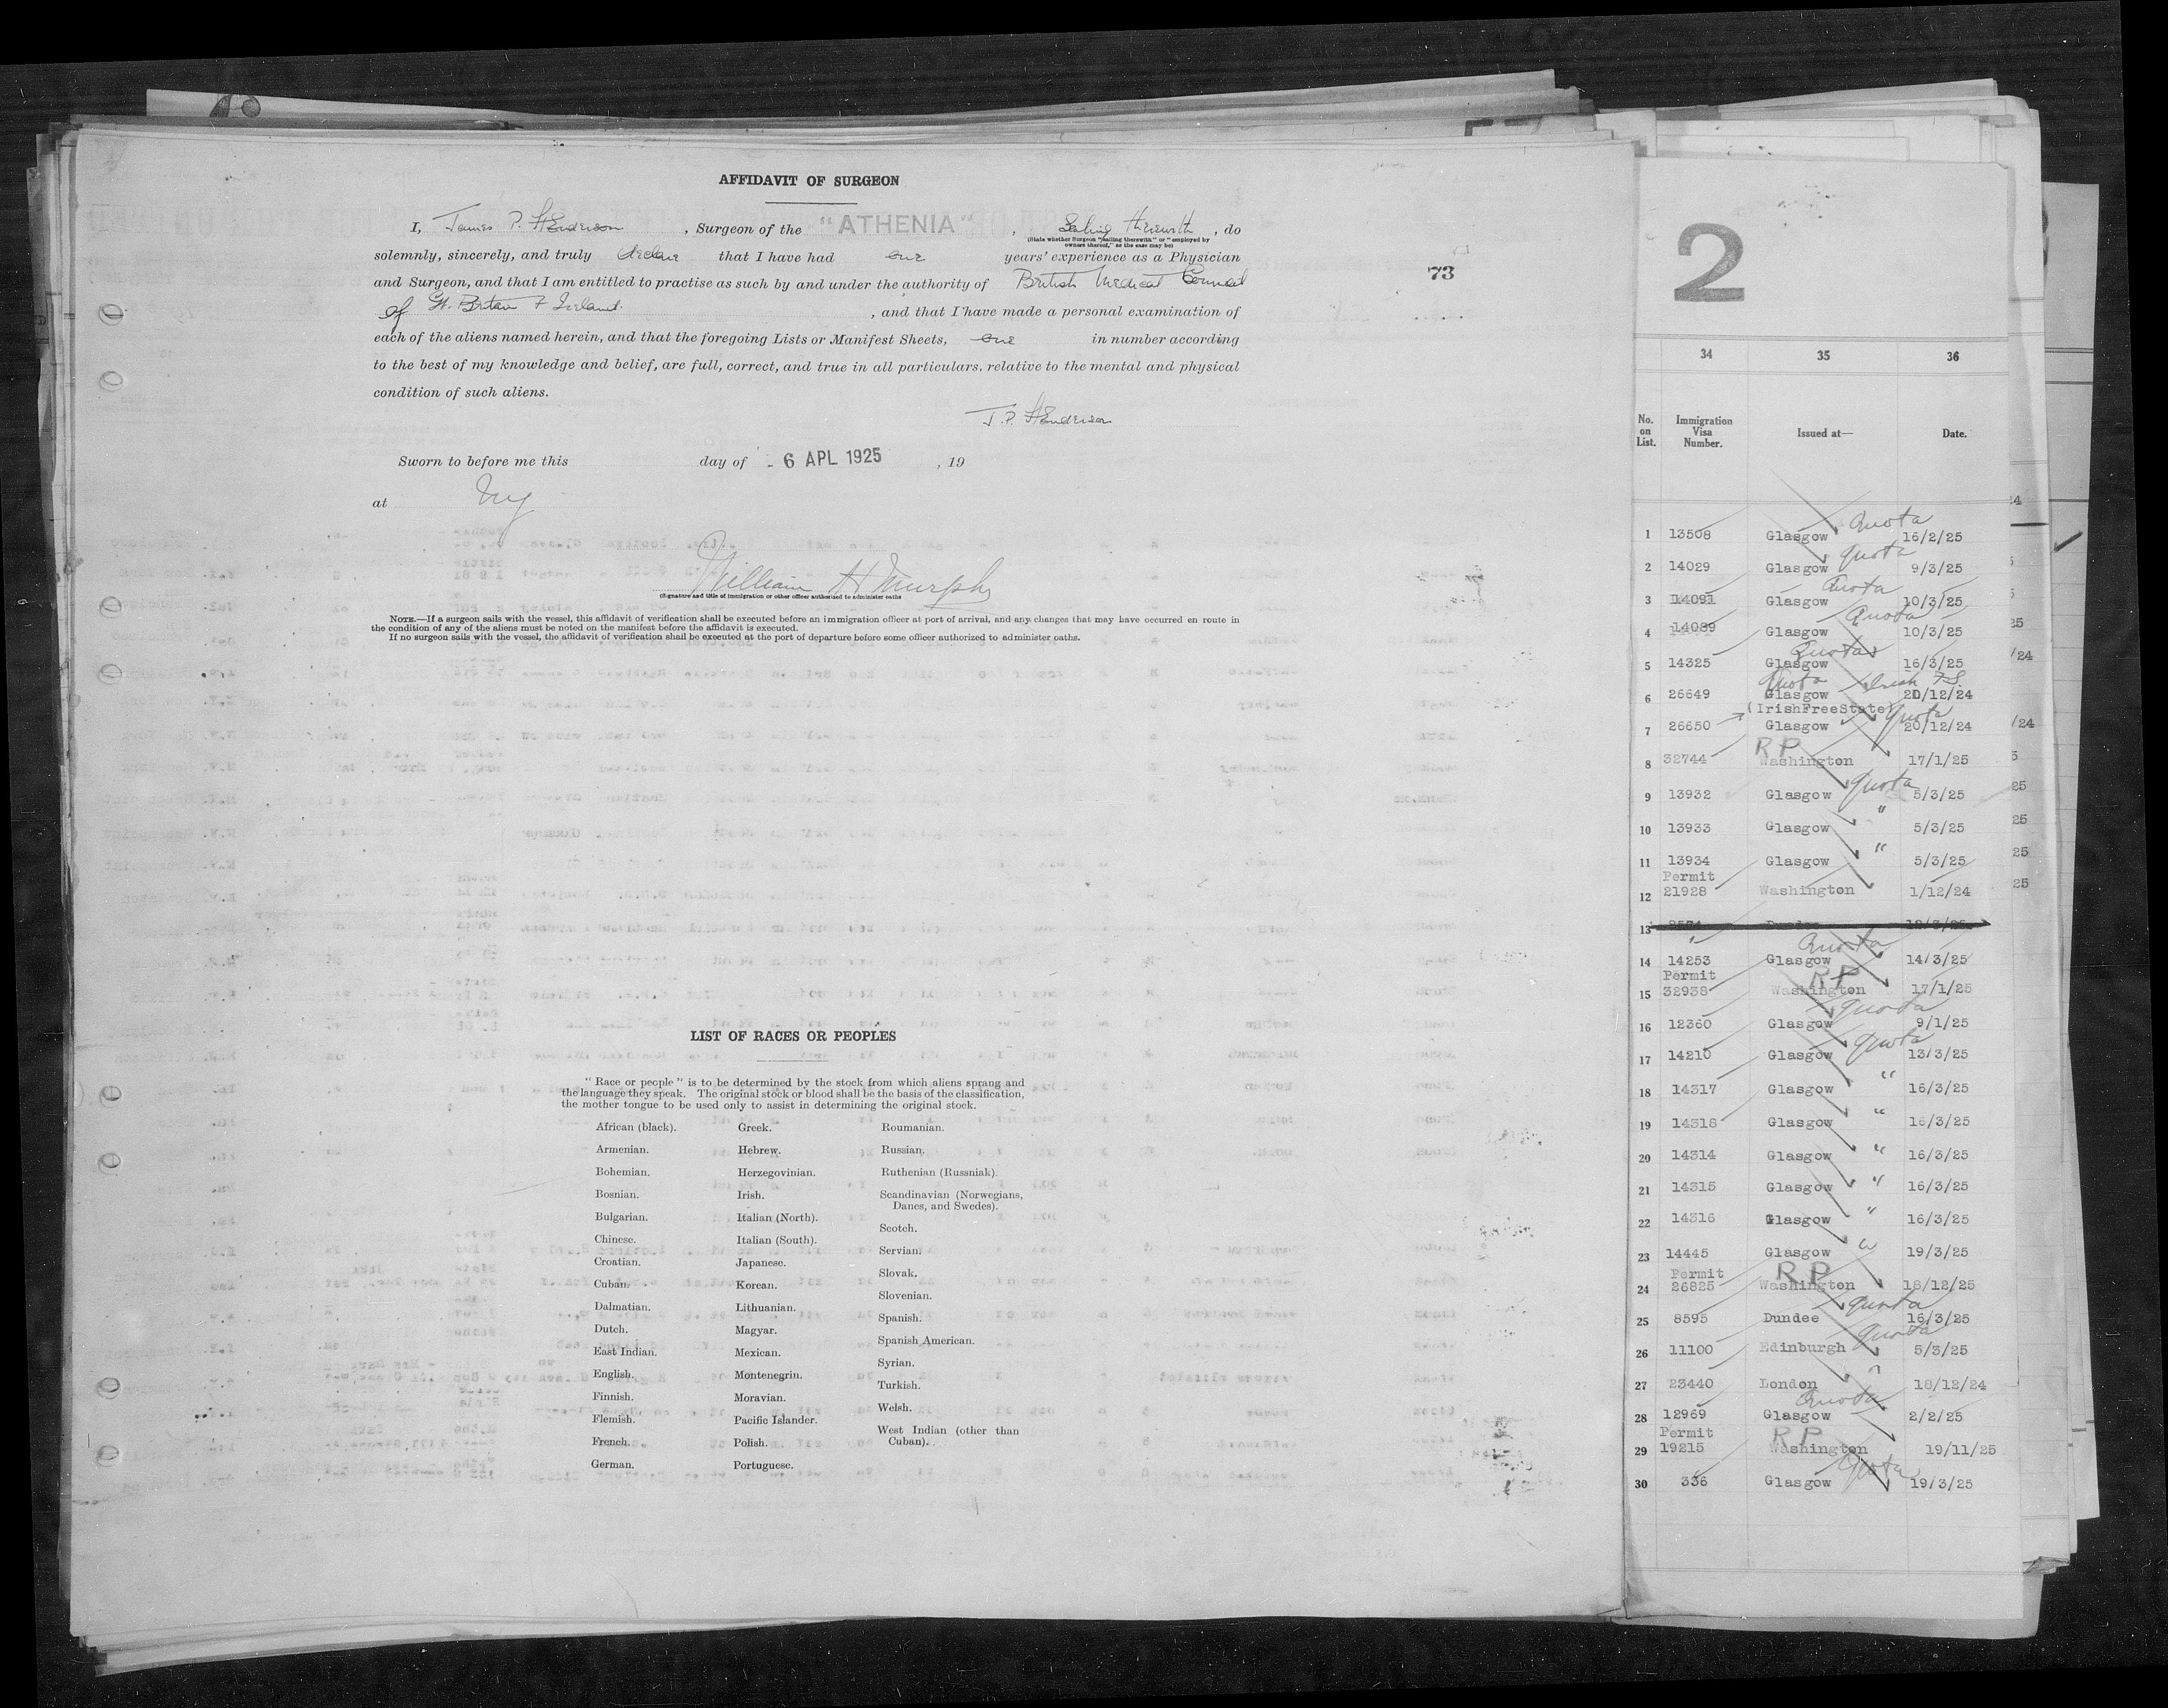 AFFIDAVIT OF SURGEON
I, James P. Henderson, Surgeon of the "ATHENIA", Sailing Therewith, do
(State whether Surgeon "sailing therewith" or "employed by
owners thereof," as the case may be)
solemnly, sincerely, and truly declare that I have had one years' experience as a Physician
and Surgeon, and that I am entitled to practise as such by and under the authority of British Medical Council
of Gt. Britain & Ireland, and that I have made a personal examination of
each of the aliens named herein, and that the foregoing Lists or Manifest Sheets, one in number according
to the best of my knowledge and belief, are full, correct, and true in all particulars, relative to the mental and physical
condition of such aliens.
J. P. Henderson
Sworn to before me this day of - 6 APL 1925, 19
at NY
William H Murphy
(Signature and title of immigration or other officer authorized to administer oaths
NOTE.—If a surgeon sails with the vessel, this affidavit of verification shall be executed before an immigration officer at port of arrival, and any changes that may have occurred en route in
the condition of any of the aliens must be noted on the manifest before the affidavit is executed.
If no surgeon sails with the vessel, the affidavit of verification shall be executed at the port of departure before some officer authorized to administer oaths.
73
LIST OF RACES OR PEOPLES
"Race or people" is to be determined by the stock from which aliens sprang and
the language they speak. The original stock or blood shall be the basis of the classification,
the mother tongue to be used only to assist in determining the original stock.
African (black).
Armenian.
Bohemian.
Bosnian.
Bulgarian.
Chinese.
Croatian.
Cuban.
Dalmatian.
Dutch.
East Indian.
English.
Finnish.
Flemish.
French.
German.
Greek.
Hebrew.
Herzegovinian.
Irish.
Italian (North).
Italian (South).
Japanese.
Korean.
Lithuanian.
Magyar.
Mexican.
Montenegrin.
Moravian.
Pacific Islander.
Polish.
Portuguese.
Roumanian.
Russian.
Ruthenian (Russniak).
Scandinavian (Norwegians,
Danes, and Swedes).
Scotch.
Servian.
Slovak.
Slovenian.
Spanish.
Spanish American.
Syrian.
Turkish.
Welsh.
West Indian (other than
Cuban).
2
34 35 36
No. on List. Immigration Visa Number. Issued at— Date.
1 13508 Glasgow Quota 16/2/25
2 14029 Glasgow Quota 9/3/25
3 14091 Glasgow Quota 10/3/25
4 14089 Glasgow Quota 10/3/25
5 14325 Glasgow Quota 16/3/25
6 26649 Glasgow Quota Irish F.S. 20/12/24
(IrishFreeState)
7 26650 Glasgow Quota 20/12/24
8 32744 RP Washington 17/1/25
9 13932 Glasgow Quota 5/3/25
10 13933 Glasgow " 5/3/25
11 13934 Glasgow " 5/3/25
Permit
12 21928 Washington 1/12/24
13 Dundee
14 14253 Glasgow Quota 14/3/25
Permit
15 32938 RP Washington 17/1/25
16 12360 Glasgow Quota 9/1/25
17 14210 Glasgow Quota 13/3/25
18 14317 Glasgow " 16/3/25
19 14318 Glasgow " 16/3/25
20 14314 Glasgow " 16/3/25
21 14315 Glasgow " 16/3/25
22 14316 Glasgow " 16/3/25
23 14445 Glasgow " 19/3/25
Permit
24 26825 RP Washington 18/12/25
25 8595 Dundee Quota 16/3/25
26 11100 Edinburgh Quota 5/3/25
27 23440 London " 18/12/24
28 12969 Glasgow Quota 2/2/25
Permit
29 19215 RP Washington 19/11/25
30 336 Glasgow Quota 19/3/25